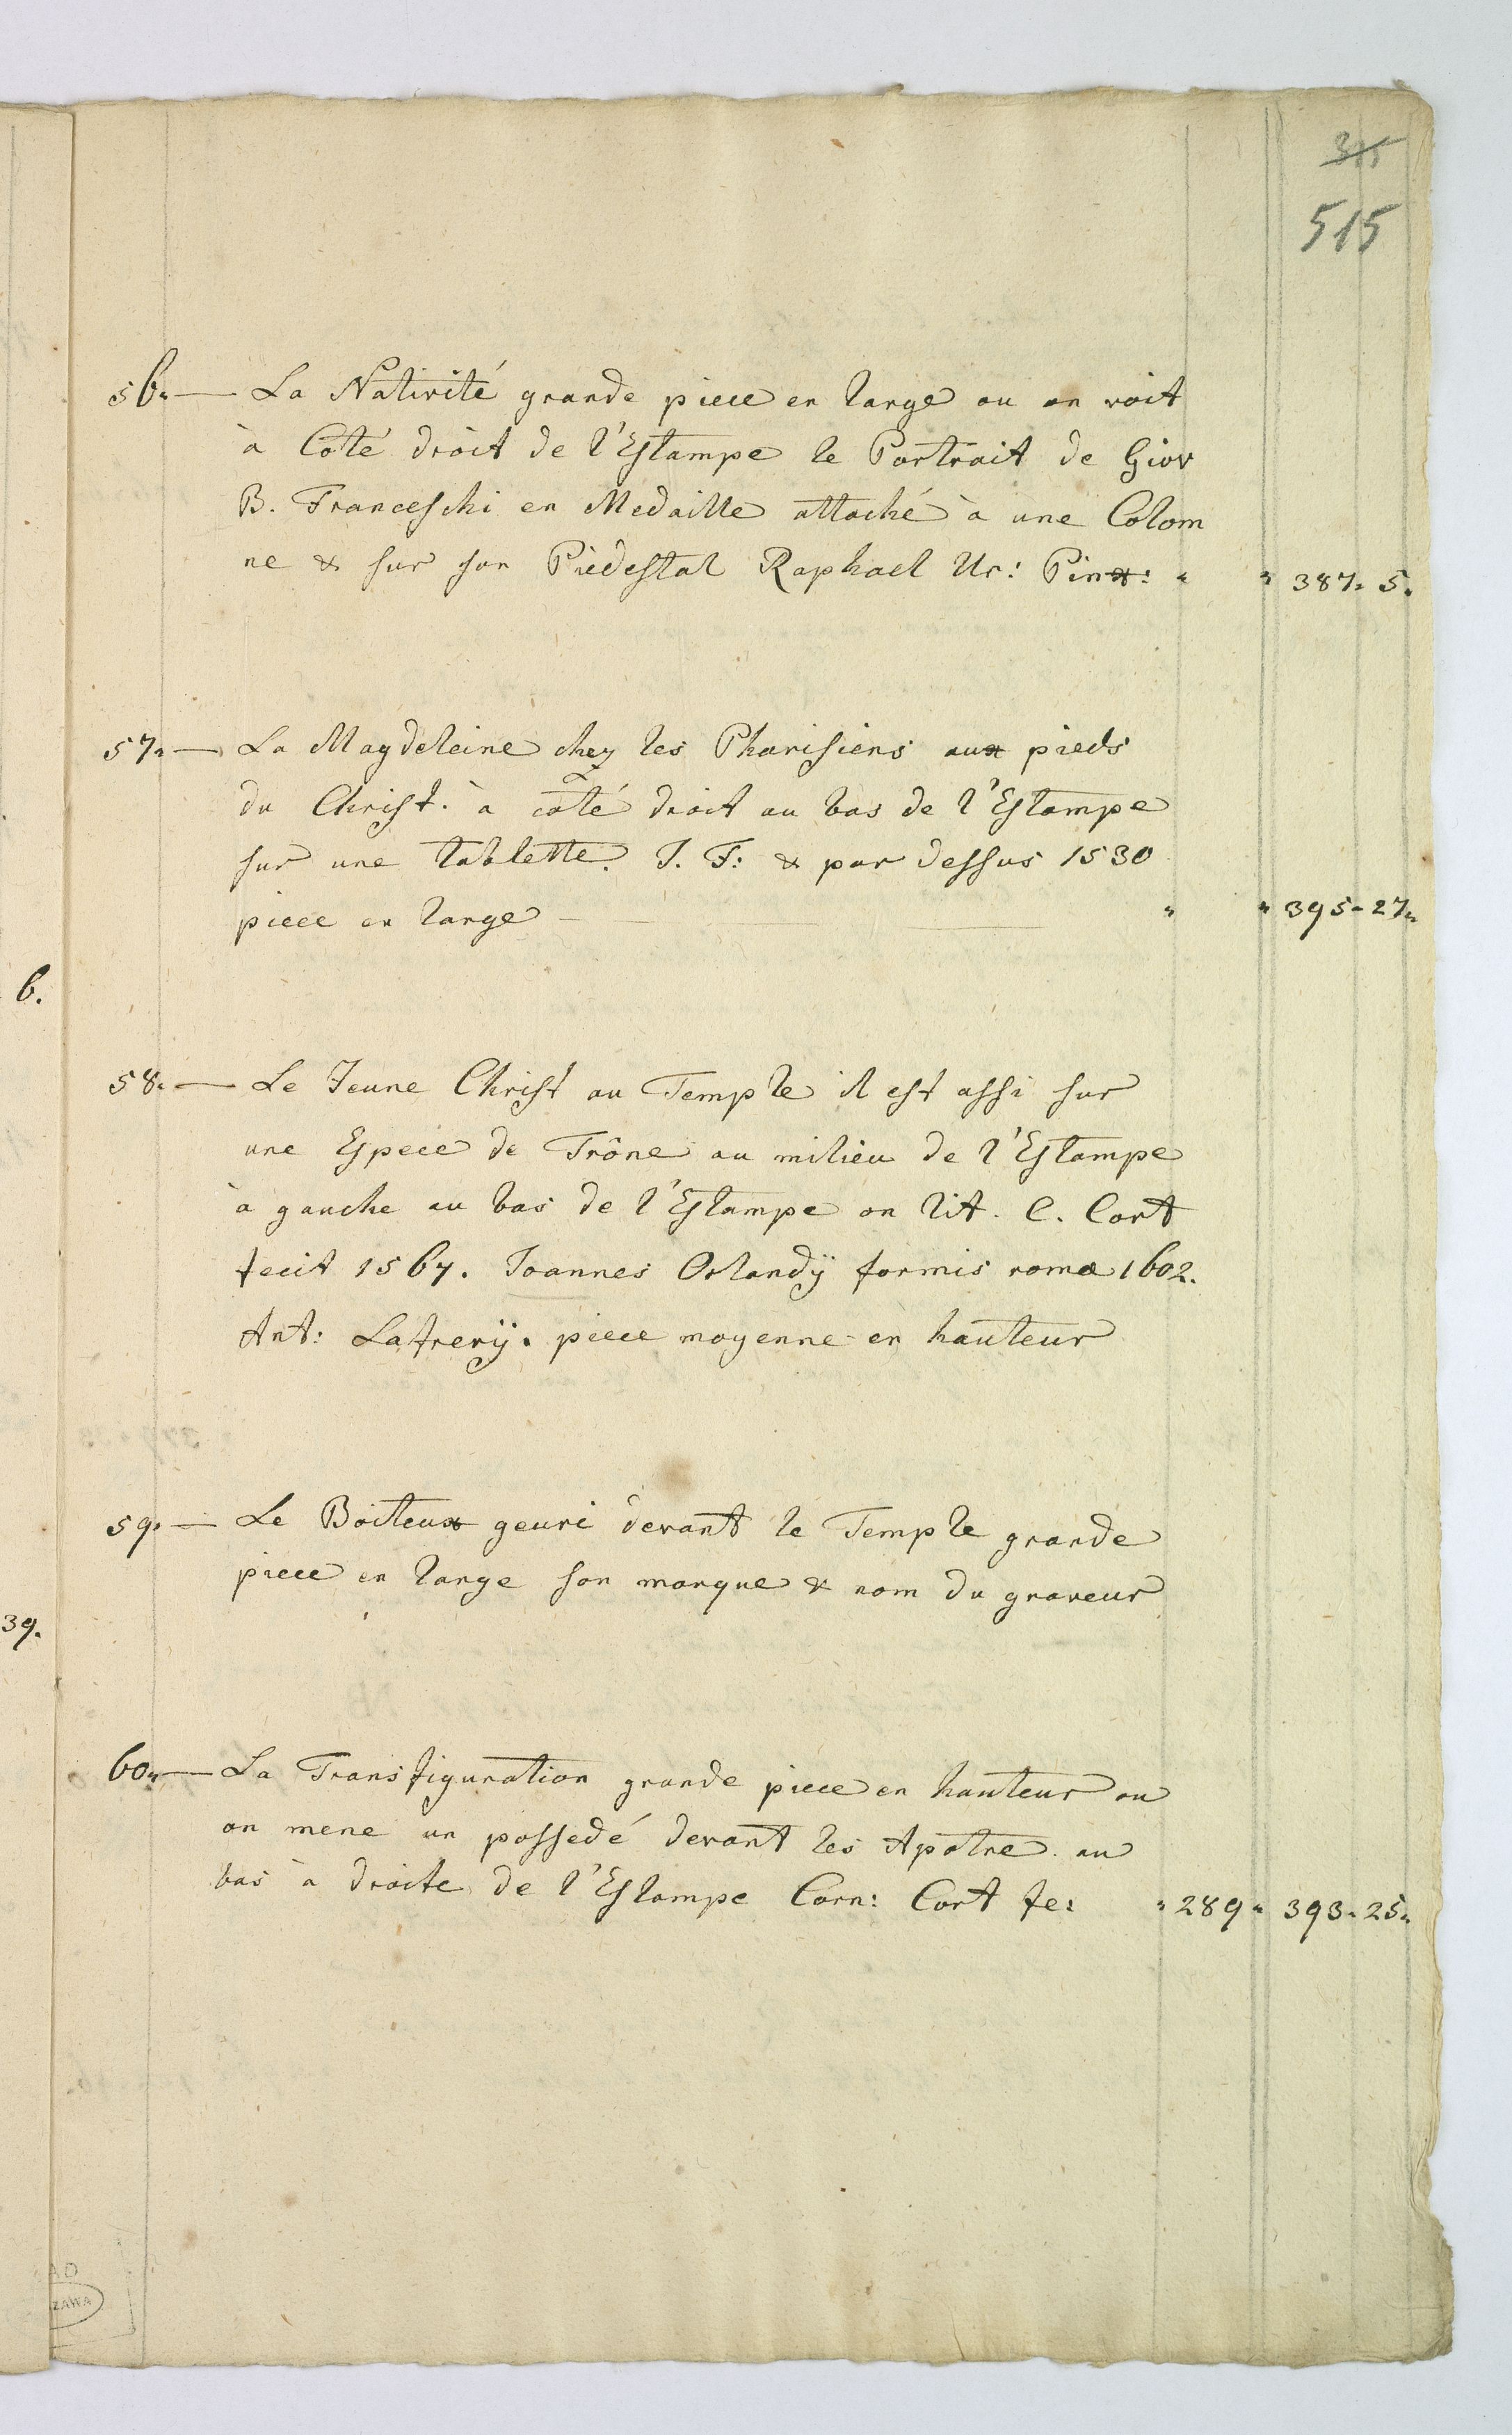 315
515
56. — La Nativité grande piece en large ou on voit
à Coté droit de l'Estampe le Portrait de Giov
B. Franceschi en Medaille attaché à une Colom
ne & sur son Piedestal Raphael Ur: Pinx: " " 387. 5.
57. — La Magdeleine chez les Pharisiens aux pieds
du Christ. à coté droit au bas de l'Estampe
sur une tablette. J. F: & par dessus 1530
piece en large — " " 395-27.
6.
58. — Le Jeune Christ au Temple il est assi sur
une Espece de Trône au milieu de l'Estampe
à gauche au bas de l'Estampe on lit. C. Cort
fecit 1567. Joannes Orlandÿ formis romæ 1602.
Ant: Lafrerÿ. piece moyenne en hauteur
59. — Le Boiteux geuri devant le Temple grande
piece en large son marque & nom du graveur
39.
60. — La Transfiguration grande piece en hauteur ou
on mene un possedé devant les Apotre. au
bas à droite de l'Estampe Corn: Cort fe: " 289 " 393. 25.
ZAWA